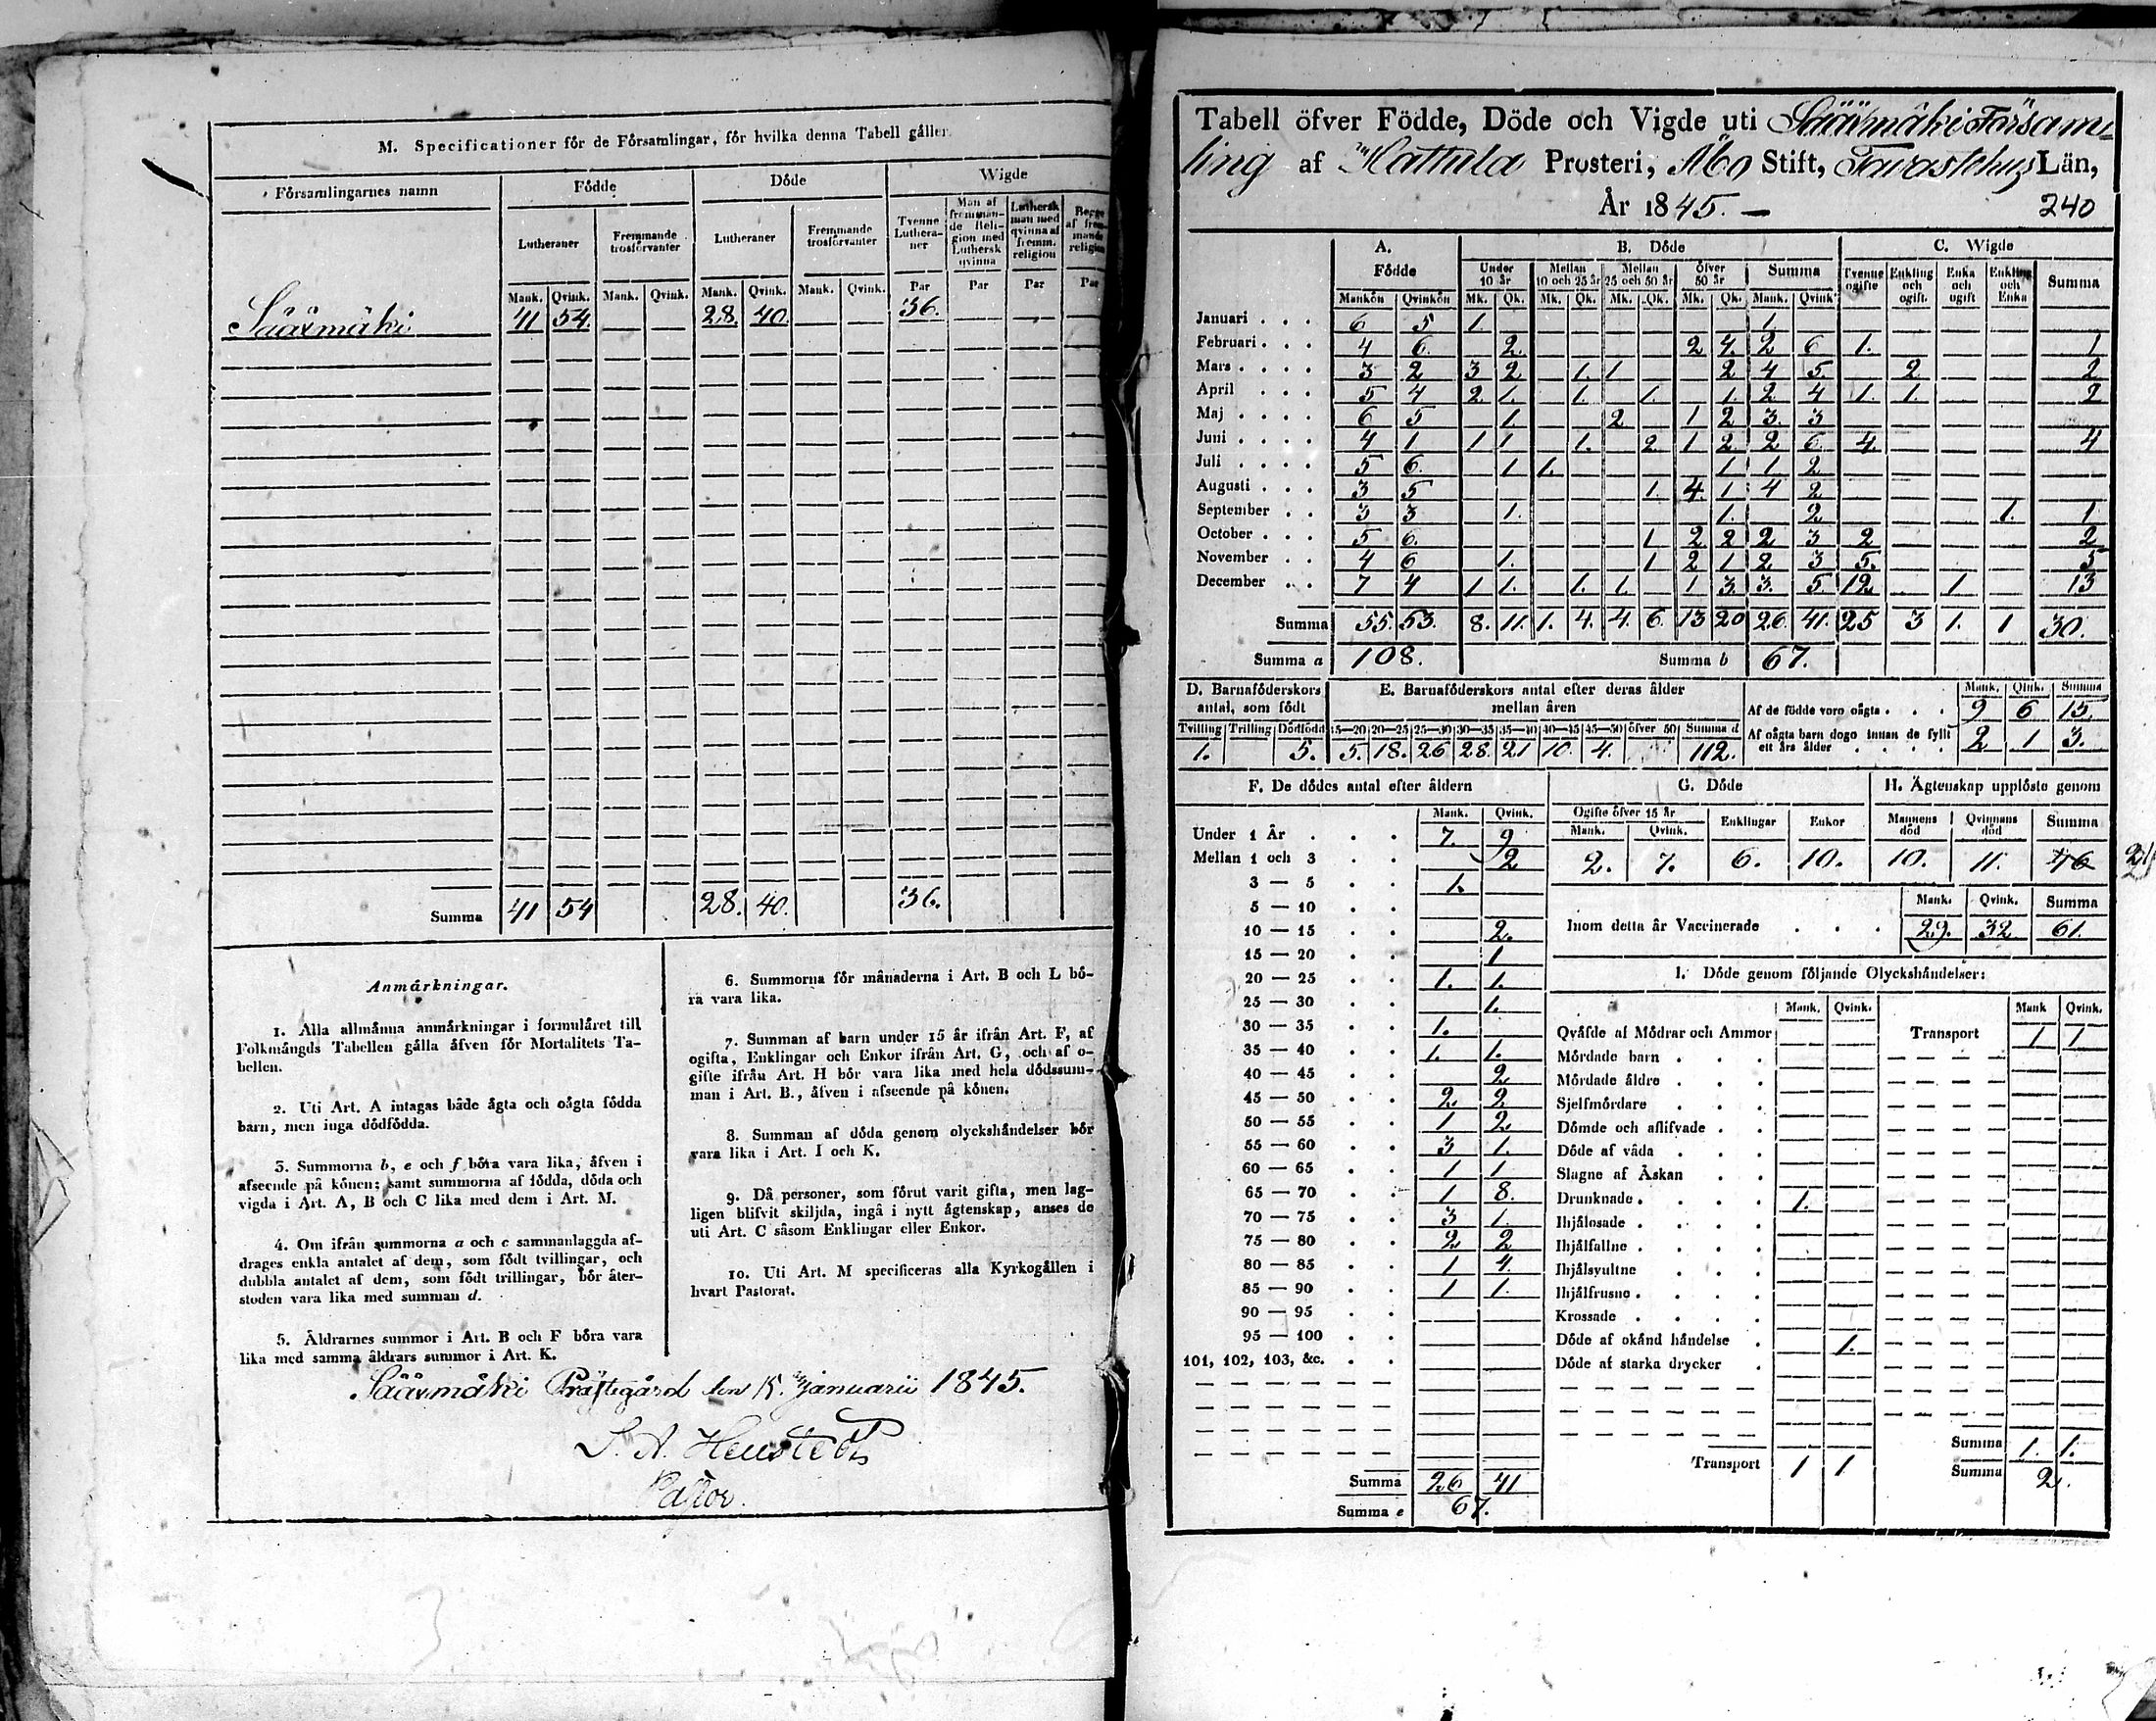 M. Specificationer för de Församlingar, för hvilka denna Tabell gäller.
Församlingarnes namn Födde Döde Wigde
Lutheraner Fremmande trosförvanter Lutheraner Fremmande trosförvanter Tvenne Lutheraner Man af fremmande Religion med Luthersk qvinna Luthersk man med qvinna af fremm. religion Begge af fremmande religion
Mank. Qvink. Mank. Qvink. Mank. Qvink. Mank. Qvink. Par Par Par Par
Sääxmäki 41 54. 28. 40. 36.
Summa 41 54 28. 40. 36.
Anmärkningar.
1. Alla allmänna anmärkningar i formuläret till
Folkmängds Tabellen gälla äfven för Mortalitets Ta-
bellen.
2. Uti Art. A intagas både ägta och oägta födda
barn, men inga dödfödda.
3. Summorna b, e och f böra vara lika, äfven i
afseende på könen; samt summorna af födda, döda och
vigda i Art. A, B och C lika med dem i Art. M.
4. Om ifrån summorna a och c sammanlaggda af-
drages enkla antalet af dem, som födt tvillingar, och
dubbla antalet af dem, som födt trillingar, bör åter-
stoden vara lika med summan d.
5. Åldrarnes summor i Art. B och F böra vara
lika med samma åldrars summor i Art. K.
6. Summorna för månaderna i Art. B och L bö-
ra vara lika.
7. Summan af barn under 15 år ifrån Art. F, af
ogifta, Enklingar och Enkor ifrån Art. G, och af o-
gifte ifrån Art. H bör vara lika med hela dödssum-
man i Art. B., äfven i afseende på könen.
8. Summan af döda genom olyckshändelser bör
vara lika i Art. I och K.
9. Då personer, som förut varit gifta, men lag-
ligen blifvit skiljda, ingå i nytt ägtenskap, anses de
uti Art. C såsom Enklingar eller Enkor.
10. Uti Art. M specificeras alla Kyrkogällen i
hvart Pastorat.
Sääxmäki Prästegård den 15. januarii 1845.
Pastor.
Tabell öfver Födde, Döde och Vigde uti Sääxmäki Försam-
ling af Hattula Prosteri, Åbo Stift, Tavastehus Län,
År 1845. —
240
A. Födde B. Döde C. Wigde
Under 10 år Mellan 10 och 25 år Mellan 25 och 50 år öfver 50 år Summa Tvenne ogifte Enkling och ogift. Enka och ogift Enkling och Enka Summa
Mankön Qvinkön Mk. Qk. Mk. Qk. Mk. Qk. Mk. Qk. Mank. Qvink.
Januari . . . 6 5 1. 1.
Februari . . . 4 6. 2. 2 4. 2 6 1. 1
Mars . . . . 3 2 3 2 1. 1 2 4 5. 2 2
April . . . 5 4 2 1. 1. 1. 1. 2 4 1. 1. 2
Maj . . . . 6 5 1. 2 1 2 3. 3
Juni . . . . 4 1 1 1 1. 2 1 2. 2 6. 4. 4
Juli . . . . 5 6. 1 1. 1 1 2
Augusti . . . 3 5 1. 4. 1 4 2
September . . 3 3 1. 1. 2 1. 1
October . . . 5 6. 1 2 2 2 3 2 2
November . . 4 6 1. 1 2 1 2. 3 5. 5
December . . 7 4 1 1. 1. 1. 1 3. 3. 5. 12. 1 13
Summa 55. 53. 8. 11. 1. 4. 4. 6. 13 20 26. 41. 25 3 1. 1 30.
Summa a 108. Summa b 67.
D. Barnaföderskors antal, som födt
Tvilling Trilling Dödfödd
1. 5.
E. Barnaföderskors antal efter deras ålder mellan åren
15—20 20—25 25—30 30—35 35—40 40—45 45—50 öfver 50 Summa d
5. 18. 26 28. 21 10. 4. 112.
Mank. Qink. Summa
Af de födde voro oägta . . . 9 6 15
Af oägta barn dogo innan de fyllt ett års ålder . . . . 2 1 3.
F. De dödes antal efter åldern
Mank. Qvink.
Under 1 År . . . 7. 9
Mellan 1 och 3 . . 2
3 — 5 . . 1.
5 — 10 . .
10 — 15 . . 2.
15 — 20 . . 1
20 — 25 . . 1. 1.
25 — 30 . . 1.
30 — 35 . . 1.
35 — 40 . . 1. 1.
40 — 45 . . 2
45 — 50 . . 2 2
50 — 55 . . 1 2
55 — 60 . . 3 1.
60 — 65 . . 1 1
65 — 70 . . 1 8.
70 — 75 . . 3 1.
75 — 80 . . 2 2
80 — 85 . . 1 4.
85 — 90 . . 1 1.
90 — 95 . .
95 — 100 . .
101, 102, 103, &c. . .
Summa 26 41
Summa e 67.
G. Döde
Ogifte öfver 15 år Enklingar Enkor
Mank. Qvink.
2. 7. 6. 10.
H. Ägtenskap upplöste genom
Mannens död Qvinnans död Summa
10. 11. 21
Mank. Qvink. Summa
Inom detta år Vaccinerade . . . 29. 32 61.
I. Döde genom följande Olyckshändelser:
Mank. Qvink. Mank Qvink.
Qväfde af Mödrar och Ammor Transport 1 1
Mördade barn . . .
Mördade äldre . . .
Sjelfmördare . . .
Dömde och aflifvade . .
Döde af våda . . .
Slagne af Åskan . .
Drunknade . . . . 1.
Ihjälosade . . . .
Ihjälfallne . . . .
Ihjälsvultne . . .
Ihjälfrusne . . . .
Krossade . . . .
Döde af okänd händelse . 1.
Döde af starka drycker .
Transport 1 1
Summa 1. 1.
Summa 2.